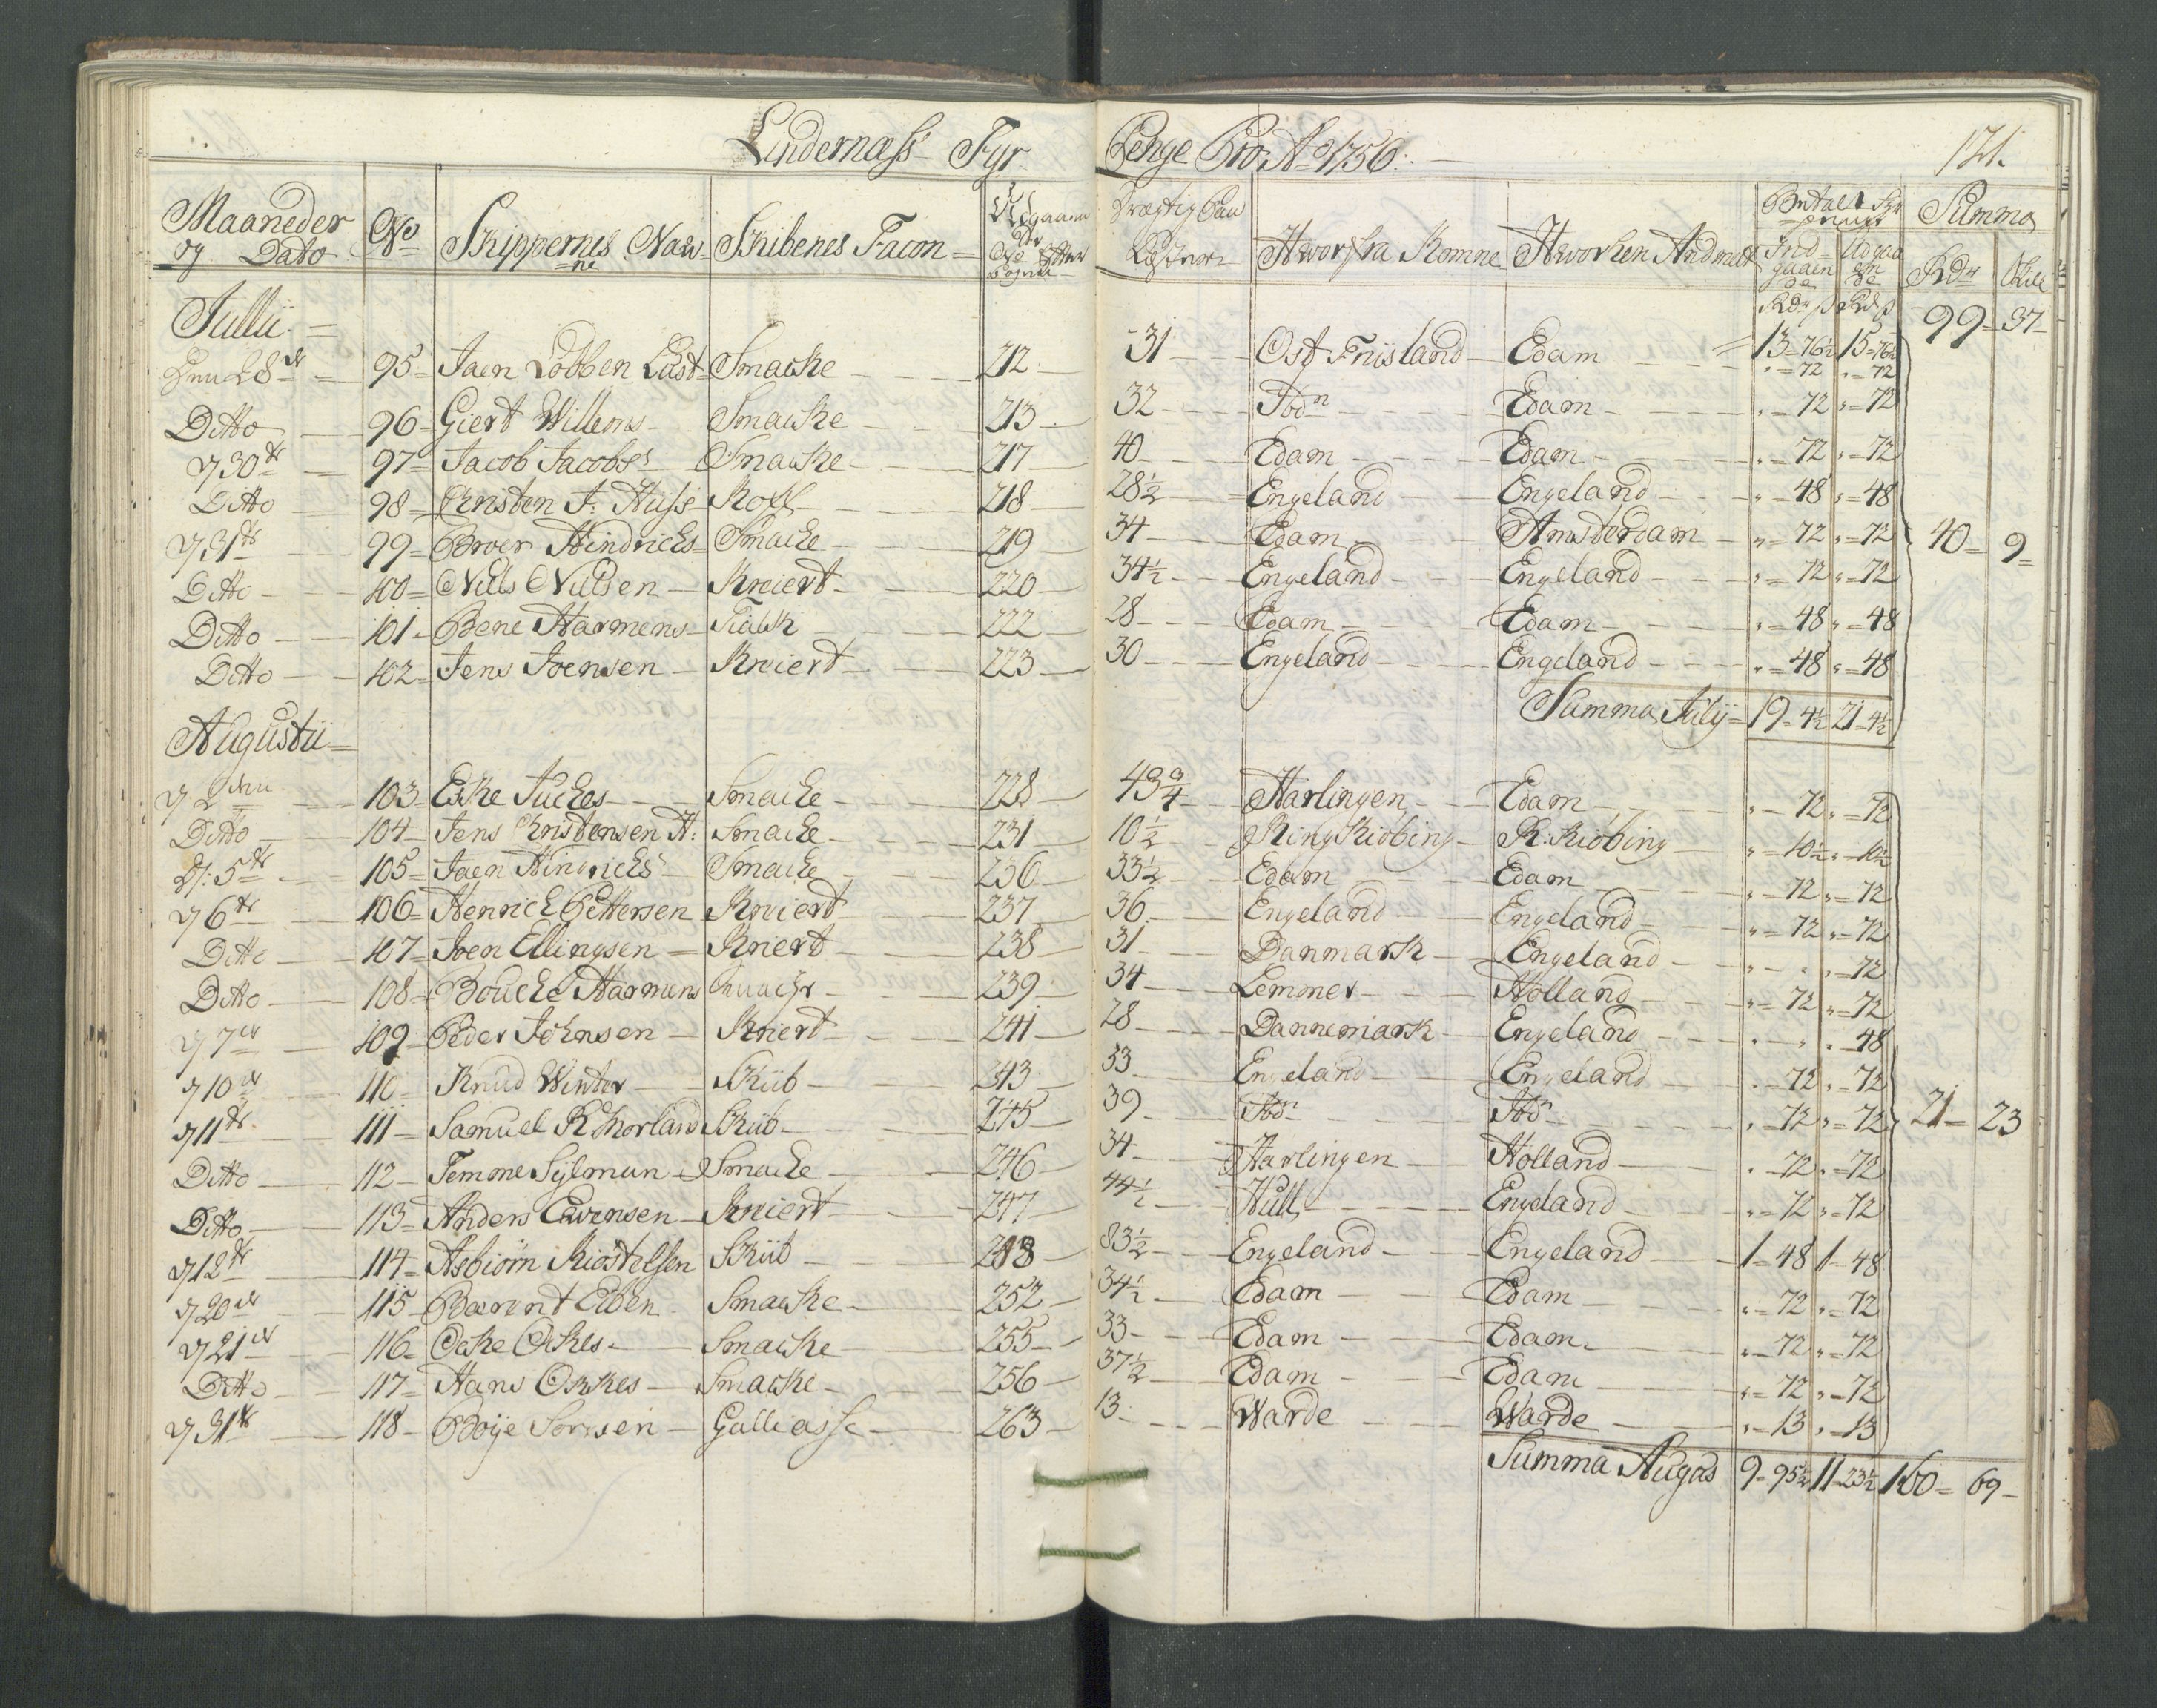 Lindernæss Fyr Penge Pro Ao 1756. 121.
Maaneder og Dato No Skippernes Naw-ne Skibenes Facon Drægtighed Læster Hvorfra Komne Hvorhen Andmelt Betalt Fyr penge Ind-gaaende Udgaaende Summa Rdr Skill
Rdr ß Rdr ß 99 - 37
Julii 13 = 76½ 15 = 76½
Den 28de 95 Jaen Lobben Last Smacke 212 31 Ost Friisland Edam „ = 72 „ = 72
Ditto 96 Giert Willems Smacke 213 32 Ibdn Edam „ = 72 „ = 72
d 30te 97 Jacob Jacobs Smacke 217 40 Edam Edam „ = 72 „ = 72
Ditto 98 Christen J: Huss Koff 218 28½ Engeland Engeland „ = 48 „ = 48
d 31te 99 Broer Hindricks Smacke 219 34 Edam Amsterdam „ = 72 „ = 72 40 = 9
Ditto 100 Niels Nielsen Kreiert 220 34½ Engeland Engeland „ = 72 „ = 72
Ditto 101 Bene Harmens Tialk 222 28 Edam Edam „ = 48 „ = 48
Ditto 102 Jens Joensen Kreiert 223 30 Engeland Engeland „ = 48 „ = 48
Summa Julij 19 = 4½ 21 = 4½
Augustii
d 2den 103 Eske Juckes Smacke 228 43¾ Harlingen Edam „ = 72 „ = 72
Ditto 104 Jens Christensen H: Smacke 231 10½ Ring Kiöbing R: Kiöbing „ = 10½ „ = 10½
d: 5te 105 Jaen Hindricks Smacke 236 33½ Edam Edam „ = 72 „ = 72
d 6te 106 Henrick Pettersen Kreiert 237 36 Engeland Engeland „ = 72 „ = 72
Ditto 107 Joen Ellingsen Kreiert 238 31 Danmark Engeland „ - „ „ = 72
Ditto 108 Boucke Harmens 239 34 Lemmer Holland „ = 72 „ = 72
d 7de 109 Peder Johnsen Kreiert 241 28 Dannemark Engeland „ - „ „ = 48
d 10de 110 Knud Winter Skiib 243 33 Engeland Engeland „ 72 „ = 72
d 11te 111 Samuel R Norland Skiib 245 39 Ibdn Ibdn „ = 72 „ = 72 21 = 23
Ditto 112 Temme Sylman Smacke 246 34 Harlingen Holland „ 72 „ = 72
Ditto 113 Anders Ewensen Kreiert 247 44½ Hull Engeland „ = 72 „ = 72
d 12te 114 Asbiörn Kiöstelsen Skiib 248 83½ Engeland Engeland 1 = 48 1 = 48
d 20de 115 Barent Eiben Smacke 252 34½ Edam Edam „ = 72 „ = 72
d 21de 116 Ocke Ockes Smacke 255 33 Edam Edam „ = 72 „ = 72
Ditto 117 Hans Ockes Smacke 256 37½ Edam Edam „ = 72 „ = 72
d 31te 118 Boÿe Sörnsen Galliasse 263 13 Warde Warde „ = 13 „ = 13
Summa Augus 9 = 95½ 11 = 23½ 160 = 69